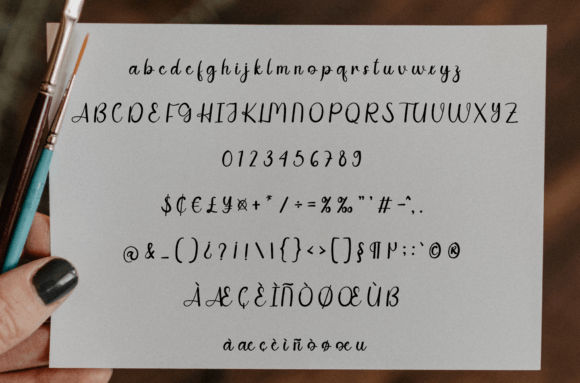 abcdefghijklmnopqrstuvwxyz
ABCDEFGHIJKLMNOPQRSTUVWXYZ
0123456789
$₵€£¥¤+*/÷=%‰"'#-^,.
@&_()¿?¡!\|{}<>[]§¶µ;:`©®
ÀÆÇÈÌÑÒØŒÙß
àæçèìñòøœu